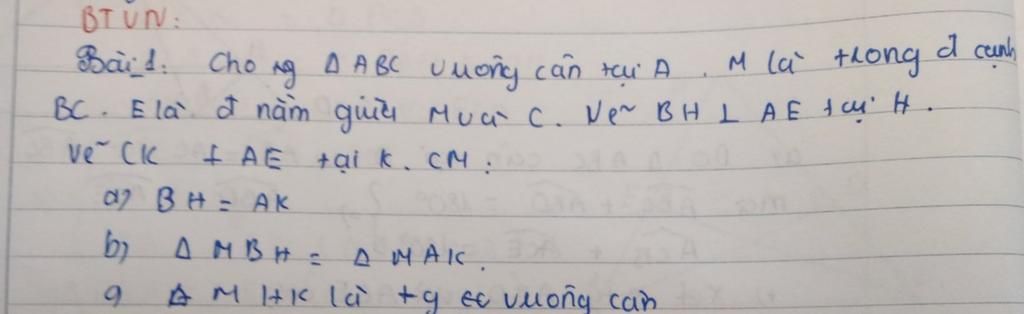 BTVN:
Bài 1: Cho tg Δ ABC vuông cân tại A. M là trong đ cạnh
BC. E là đ nằm giữa M và C. Vẽ BH ⊥ AE tại H.
Vẽ CK ⊥ AE tại K. CM:
a) BH = AK
b) Δ MBH = Δ MAK.
c) Δ MHK là tg vuông cân